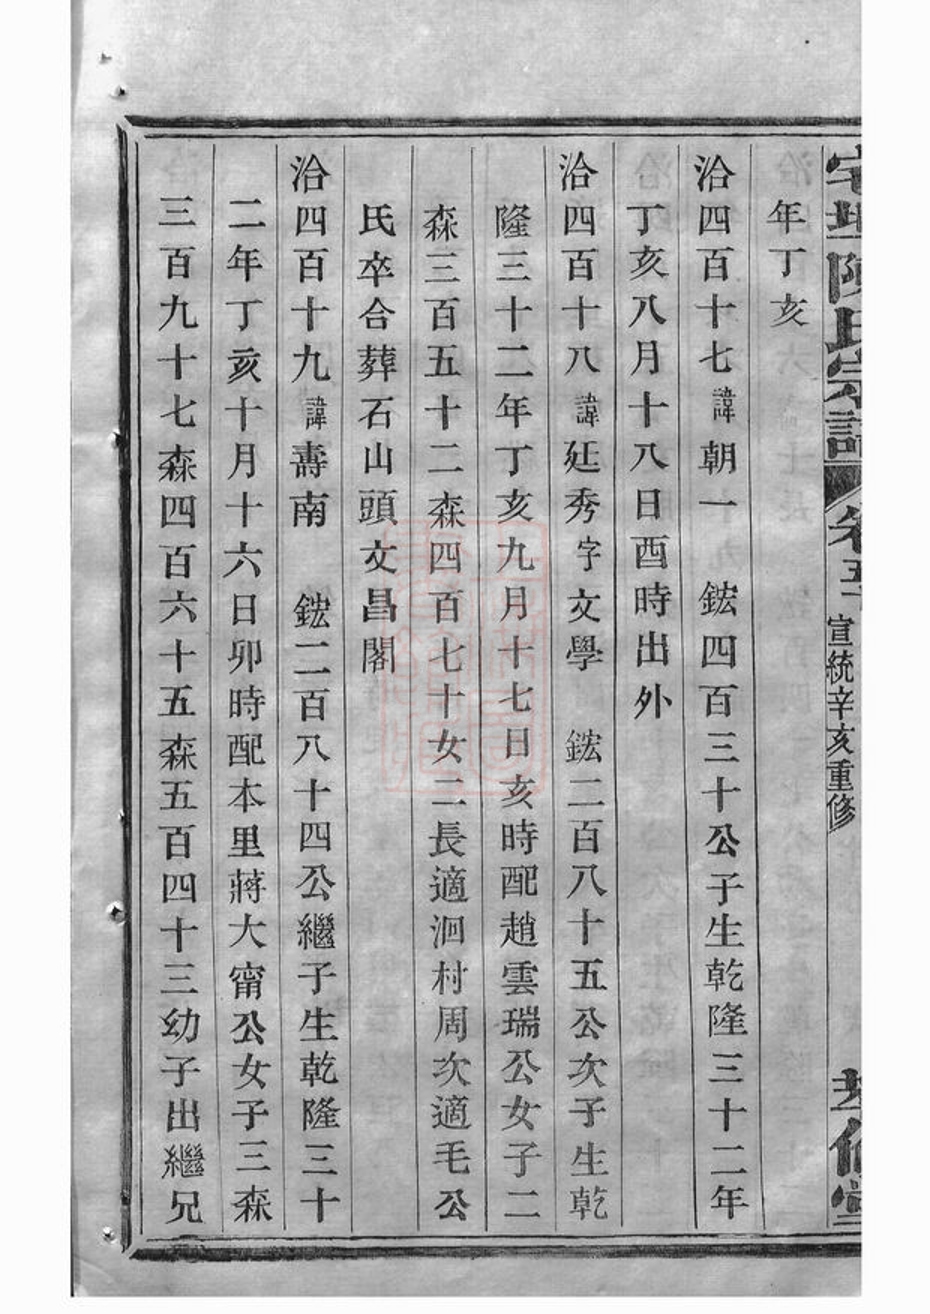 陳氏宗譜 卷五十 宣統辛亥重修
年丁亥
洽四百十七諱朝一 鋐四百三十公子生乾隆三十二年
丁亥八月十八日酉時出外
洽四百十八諱廷秀字文學 鋐二百八十五公次子生乾
隆三十二年丁亥九月十七日亥時配趙雲瑞公女子二
森三百五十二森四百七十女二長適洄村周次適毛公
氏卒合葬石山頭文昌閣
洽四百十九諱壽南 鋐二百八十四公繼子生乾隆三十
二年丁亥十月十六日卯時配本里蔣大甯公女子三森
三百九十七森四百六十五森五百四十三幼子出繼兄